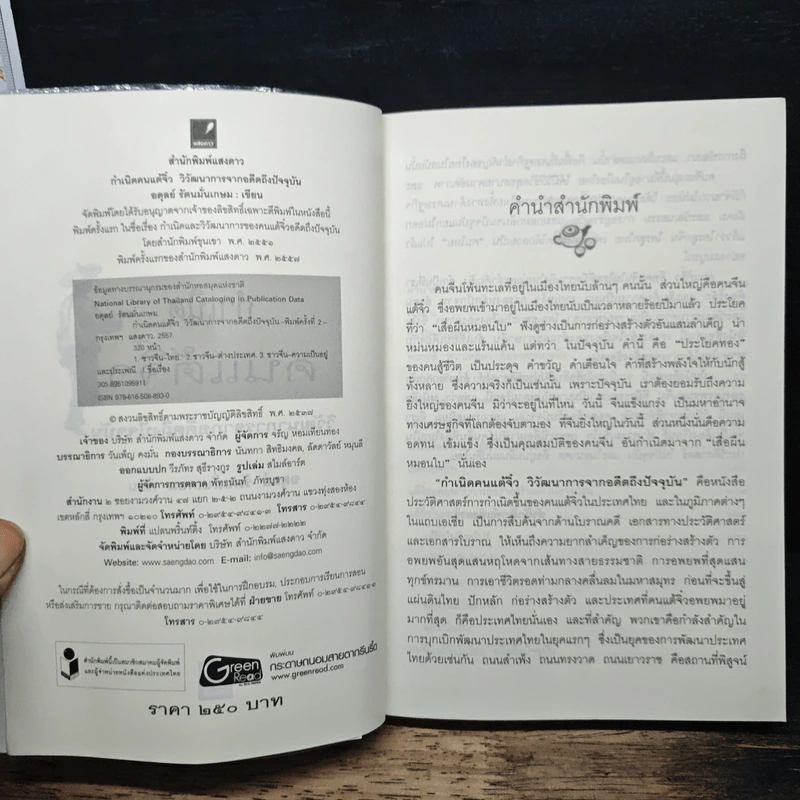 แสงดาว
สำนักพิมพ์แสงดาว
กำเนิดคนแต้จิ๋ว วิวัฒนาการจากอดีตถึงปัจจุบัน
อดุลย์ รัตนมั่นเกษม : เขียน
จัดพิมพ์โดยได้รับอนุญาตจากเจ้าของลิขสิทธิ์เฉพาะตีพิมพ์ในหนังสือนี้
พิมพ์ครั้งแรก ในชื่อเรื่อง กำเนิดและวิวัฒนาการของคนแต้จิ๋วอดีตถึงปัจจุบัน
โดยสำนักพิมพ์ขุนเขา พ.ศ. ๒๕๕๑
พิมพ์ครั้งแรกของสำนักพิมพ์แสงดาว พ.ศ. ๒๕๕๗
ข้อมูลทางบรรณานุกรมของสำนักหอสมุดแห่งชาติ
National Library of Thailand Cataloging in Publication Data
อดุลย์ รัตนมั่นเกษม
กำเนิดคนแต้จิ๋ว วิวัฒนาการจากอดีตถึงปัจจุบัน.-พิมพ์ครั้งที่ 2.-
กรุงเทพฯ แสงดาว, 2557
320 หน้า
1. ชาวจีน-ไทย 2. ชาวจีน-ต่างประเทศ 3. ชาวจีน-ความเป็นอยู่
และประเพณี I.ชื่อเรื่อง
305.8951095911
ISBN 978-616-508-893-0
© สงวนลิขสิทธิ์ตามพระราชบัญญัติลิขสิทธิ์ พ.ศ. ๒๕๓๗
เจ้าของ บริษัท สำนักพิมพ์แสงดาว จำกัด ผู้จัดการ จรัญ หอมเทียนทอง
บรรณาธิการ วันเพ็ญ คงมั่น กองบรรณาธิการ นันทกา สิทธิมงคล, ลัดดาวัลย์ หมุนลี
ออกแบบปก วีรภัทร สุธีรางกูร รูปเล่ม สไมล์อาร์ต
ผู้จัดการการตลาด พัทธนันท์ ภัทรบูชา
สำนักงาน ๒ ซอยงามวงศ์วาน ๔๗ แยก ๒-๕-๒ ถนนงามวงศ์วาน แขวงทุ่งสองห้อง
เขตหลักสี่ กรุงเทพฯ ๑๐๒๑๐ โทรศัพท์ ๐-๒๙๕๔-๙๘๔๑-๓ โทรสาร ๐-๒๙๕๔-๙๘๔๔
พิมพ์ที่ แปลนพริ้นท์ติ้ง โทรศัพท์ ๐-๒๒๗๗-๒๒๒๒
จัดพิมพ์และจัดจำหน่ายโดย บริษัท สำนักพิมพ์แสงดาว จำกัด
Website: www.saengdao.com E-mail: info@saengdao.com
ในกรณีที่ต้องการสั่งซื้อเป็นจำนวนมาก เพื่อใช้ในการฝึกอบรม, ประกอบการเรียนการสอน
หรือส่งเสริมการขาย กรุณาติดต่อสอบถามราคาพิเศษได้ที่ ฝ่ายขาย โทรศัพท์ ๐-๒๙๕๔-๙๘๔๑-๓
โทรสาร ๐-๒๙๕๔-๙๘๔๔
สำนักพิมพ์นี้เป็นสมาชิกสมาคมผู้จัดพิมพ์
และผู้จำหน่ายหนังสือแห่งประเทศไทย
Green Read
พิมพ์บน
กระดาษถนอมสายตากรีนรี้ด
www.greenread.com
ราคา ๒๕๐ บาท
คำนำสำนักพิมพ์
คนจีนโพ้นทะเลที่อยู่ในเมืองไทยนับล้านๆ คนนั้น ส่วนใหญ่คือคนจีน
แต้จิ๋ว ซึ่งอพยพเข้ามาอยู่ในเมืองไทยนับเป็นเวลาหลายร้อยปีมาแล้ว ประโยค
ที่ว่า "เสื่อผืนหมอนใบ" ฟังดูช่างเป็นการก่อร่างสร้างตัวอันแสนลำเค็ญ น่า
หม่นหมองและแร้นแค้น แต่ทว่า ในปัจจุบัน คำนี้ คือ "ประโยคทอง"
ของคนสู้ชีวิต เป็นประดุจ คำขวัญ คำเตือนใจ คำที่สร้างพลังใจให้กับนักสู้
ทั้งหลาย ซึ่งความจริงก็เป็นเช่นนั้น เพราะปัจจุบัน เราต้องยอมรับถึงความ
ยิ่งใหญ่ของคนจีน มิว่าจะอยู่ในที่ไหน วันนี้ จีนแข็งแกร่ง เป็นมหาอำนาจ
ทางเศรษฐกิจที่โลกต้องจับตามอง ที่จีนยิ่งใหญ่ในวันนี้ ส่วนหนึ่งนั่นคือความ
อดทน เข้มแข็ง ซึ่งเป็นคุณสมบัติของคนจีน อันกำเนิดมาจาก "เสื่อผืน
หมอนใบ" นั่นเอง
"กำเนิดคนแต้จิ๋ว วิวัฒนาการจากอดีตถึงปัจจุบัน" คือหนังสือ
ประวัติศาสตร์การกำเนิดขึ้นของคนแต้จิ๋วในประเทศไทย และในภูมิภาคต่างๆ
ในแถบเอเชีย เป็นการสืบค้นจากด้านโบราณคดี เอกสารทางประวัติศาสตร์
และเอกสารโบราณ ให้เห็นถึงความยากลำเค็ญของการก่อร่างสร้างตัว การ
อพยพอันสุดแสนหฤโหดจากเส้นทางสายธรรมชาติ การอพยพที่สุดแสน
ทุกข์ทรมาน การเอาชีวิตรอดท่ามกลางคลื่นลมในมหาสมุทร ก่อนที่จะขึ้นสู่
แผ่นดินไทย ปักหลัก ก่อร่างสร้างตัว และประเทศที่คนแต้จิ๋วอพยพมาอยู่
มากที่สุด ก็คือประเทศไทยนั่นเอง และที่สำคัญ พวกเขาคือกำลังสำคัญใน
การบุกเบิกพัฒนาประเทศไทยในยุคแรกๆ ซึ่งเป็นยุคของการพัฒนาประเทศ
ไทยด้วยเช่นกัน ถนนสำเพ็ง ถนนทรงวาด ถนนเยาวราช คือสถานที่พิสูจน์